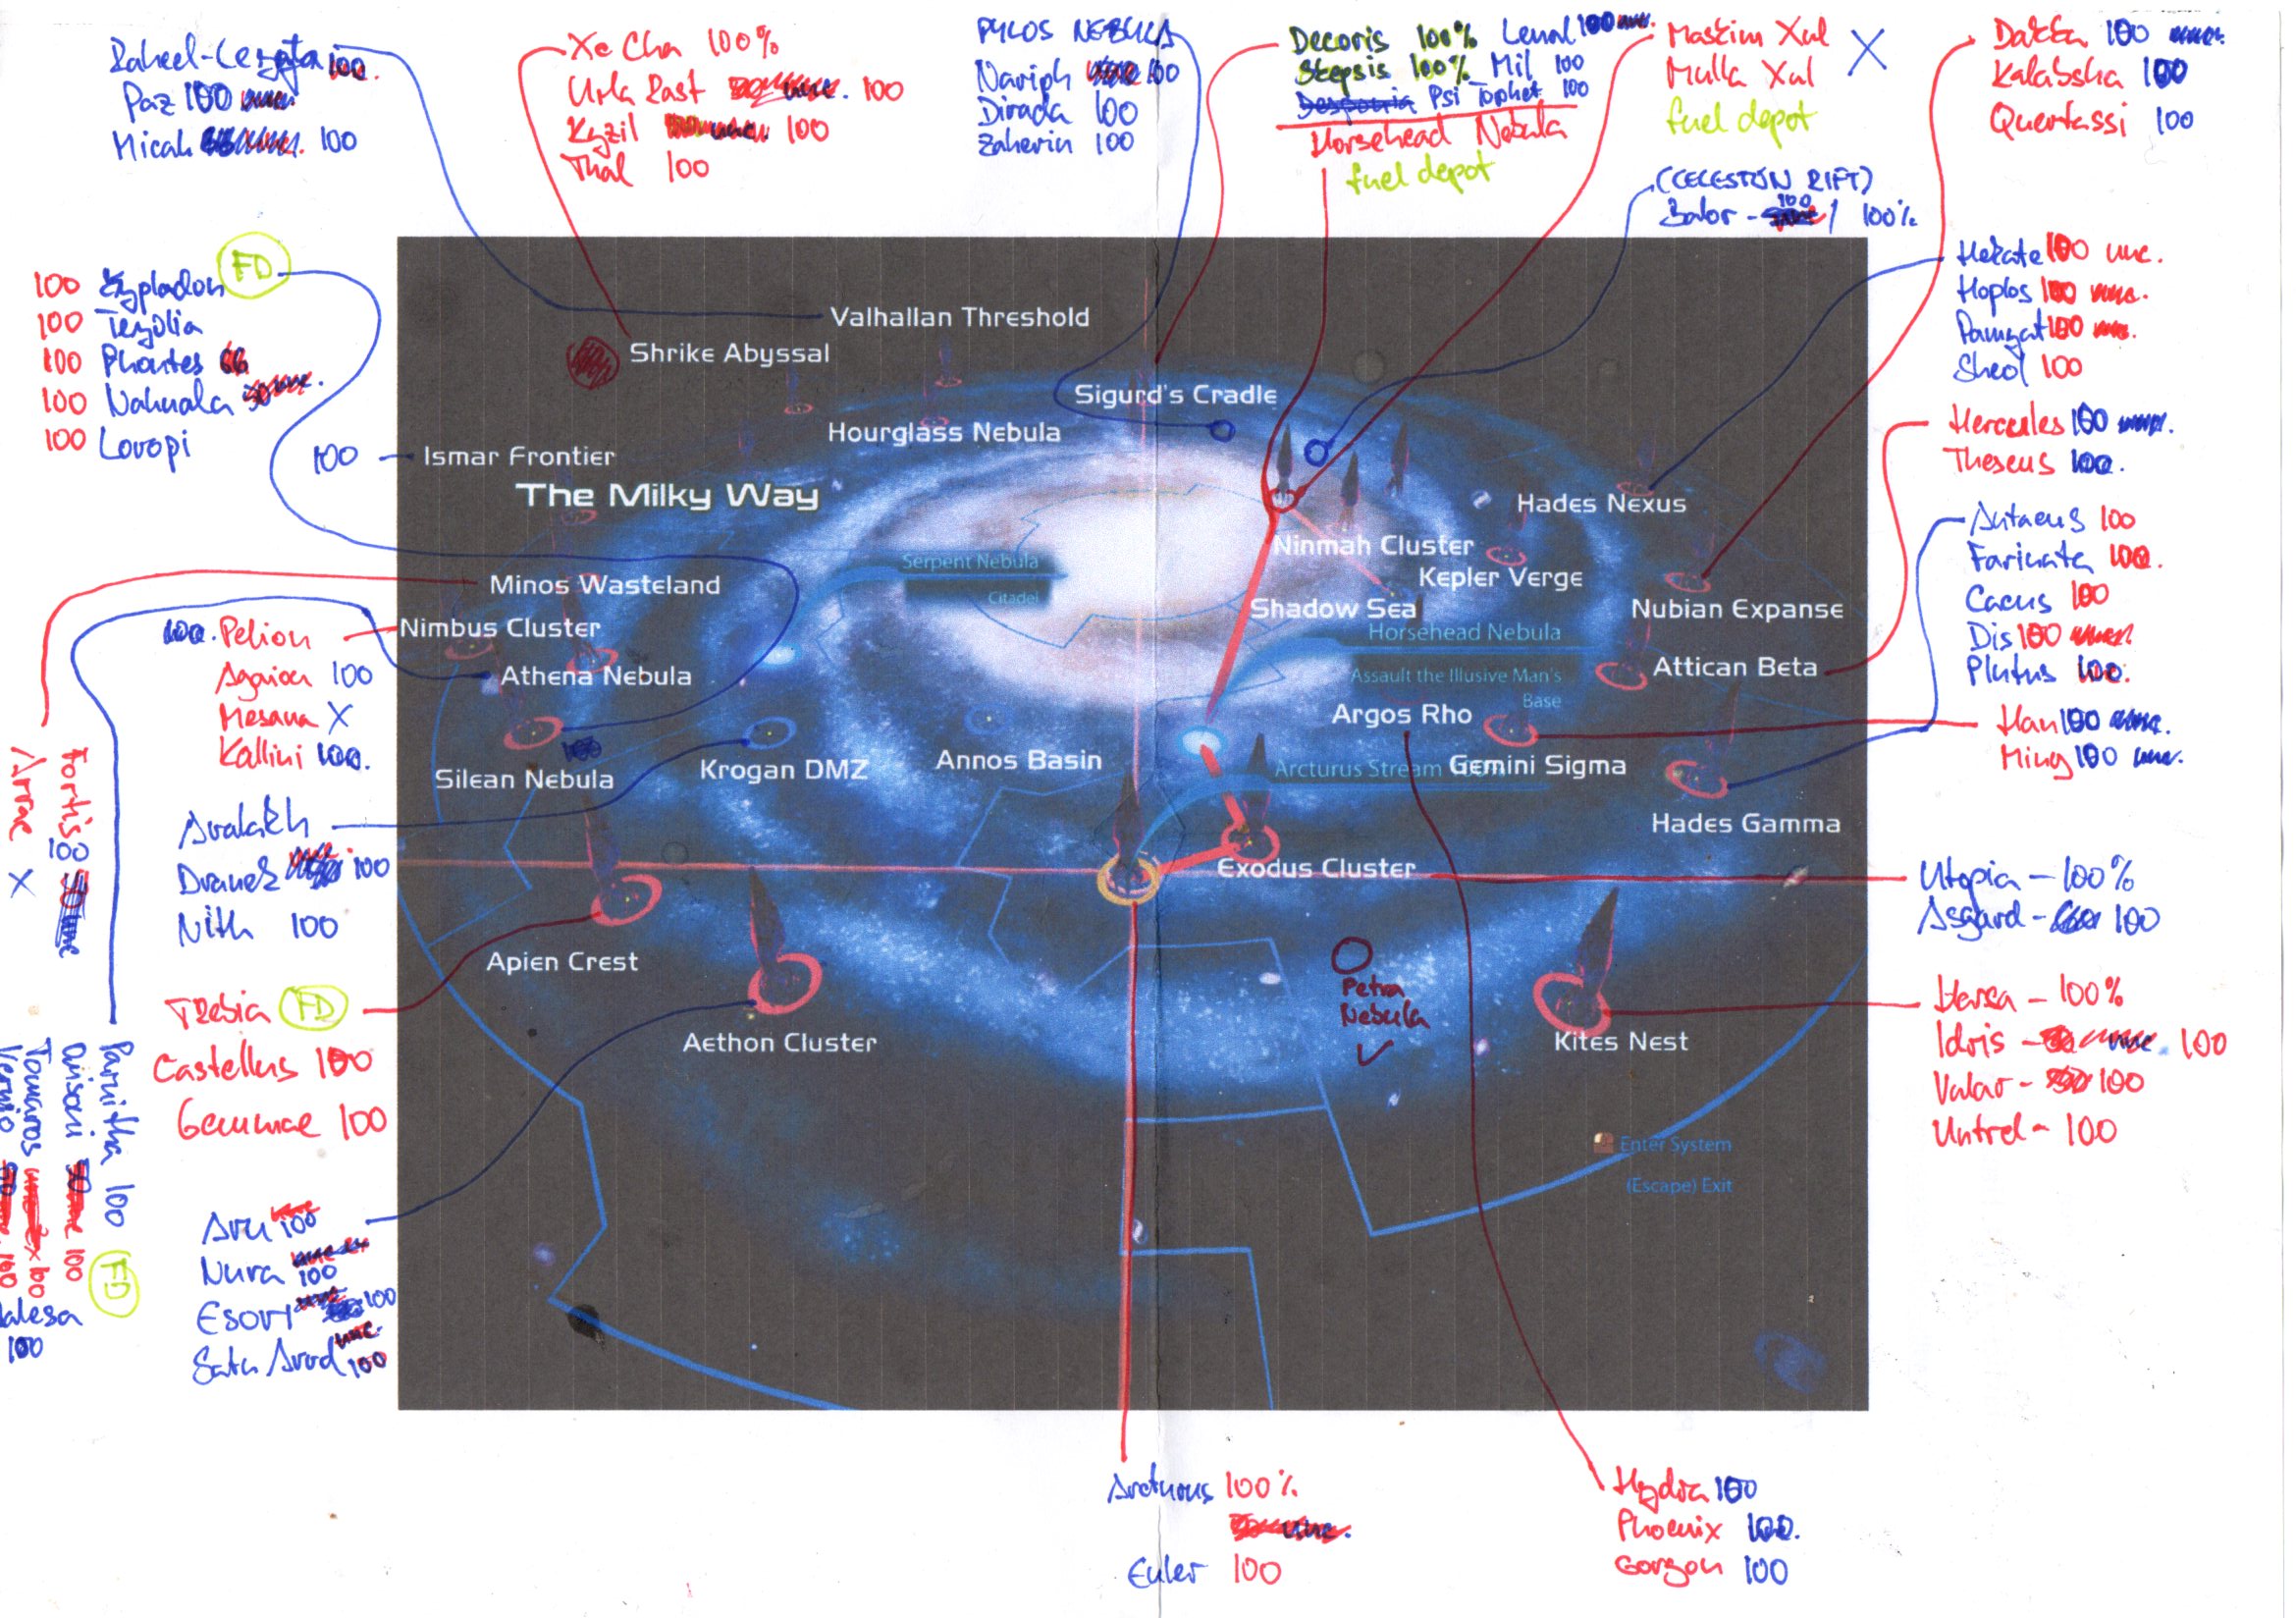 Raheel-Leyata 100.
Paz 100
Micah 100
Xe Cha 100%
Urla Rast unc. 100
Kyzil unc. 100
Thal 100
PYLOS NEBULA
Nariph 100
Dirada 100
Zaherin 100
Decoris 100% Lenal 100
Skepsis 100% Mil 100
Despoina Psi Tophet 100
Horsehead Nebula
fuel depot
Maskim Xul X
Mulla Xul
fuel depot
(CELESTON RIFT)
Balor - 100 / 100%
Dakka 100
Kalabsha 100
Quertassi 100
FD
100 Zypladon
100 Teyolia
100 Phontes 66
100 Nahuala
100 Lovopi
Hekate 100 unc.
Hoplos 100 unc.
Pamyat 100 unc.
Sheol 100
Hercules 100
Theseus 100.
Antaeus 100
Farinata 100.
Cacus 100
Dis 100
Plutus 100.
Han 100 unc.
Ming 100 unc.
Utopia - 100%
Asgard - 100
Harsa - 100%
Idris - unc. 100
Valar - 100
Untrel - 100
Valhallan Threshold
Shrike Abyssal
Sigurd's Cradle
Hourglass Nebula
100 - Ismar Frontier
The Milky Way
Hades Nexus
Ninmah Cluster
Serpent Nebula
Citadel
Kepler Verge
Minos Wasteland
Shadow Sea
Nubian Expanse
Nimbus Cluster
Horsehead Nebula
Athena Nebula
Attican Beta
Assault the Illusive Man's
Base
Argos Rho
Annos Basin
Krogan DMZ
Arcturus Stream
Gemini Sigma
Silean Nebula
Hades Gamma
Exodus Cluster
Apien Crest
Petra
Nebula
Aethon Cluster
Kites Nest
Enter System
(Escape) Exit
100. Pelion
Agaiou 100
Mesana X
Kallini 100.
Fortis 100
Arrae X
Aralakh
Dranek 100
Nith 100
Trebia FD
Castellus 100
Gemmae 100
Parnitha 100 FD
Orisoni 100
Tomaros 100
Vernio 100
100
Aru 100
Nura 100
Esori 100
Satu Arrd unc. 100
Arcturus 100%
unc.
Euler 100
Hydra 100
Phoenix 100.
Gorgon 100